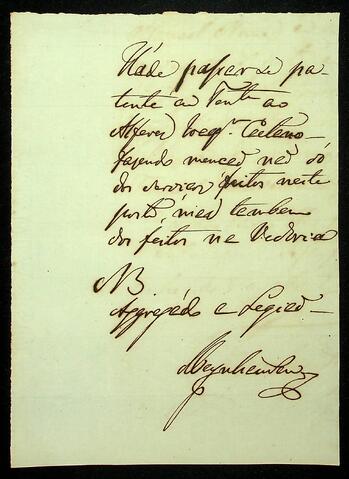 Hade passar se pa-
tente de Tente ao
Alferes Joaqm. Caetano
fazendo menção não só
dos serviços feitos neste
porto, mas tambem
dos feitos na
NB
Aggregado a Legião